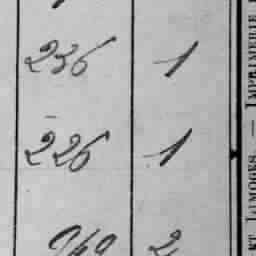 236 1
226 1
249 2
ET LIMOGES. — IMPRIMERIE